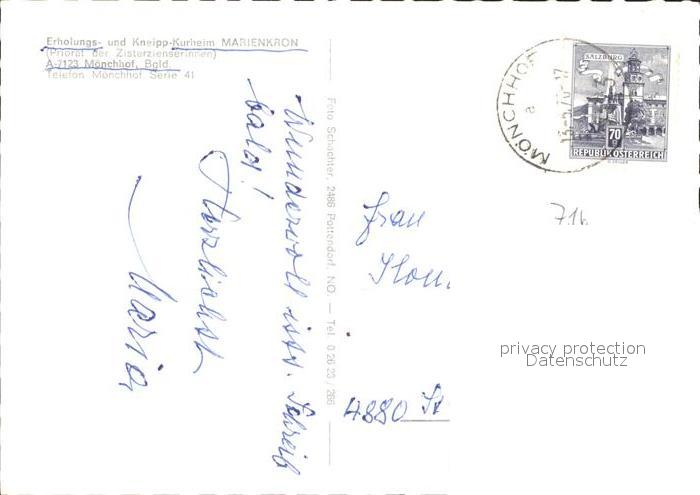 Erholungs- und Kneipp-Kurheim MARIENKRON
(Priorat der Zisterzienserinnen)
A-7123 Mönchhof, Bgld.
Telefon Mönchhof Serie 41
Wundervoll ists. Schreib
bald!
Herzlichst
Maria
Foto Schachter, 2486 Pottendorf, NÖ. — Tel. 0 26 23 / 286
MÖNCHHOF
a
SALZBURG
70
g
REPUBLIK ÖSTERREICH
7.1b
Frau
4880 St
privacy protection
Datenschutz